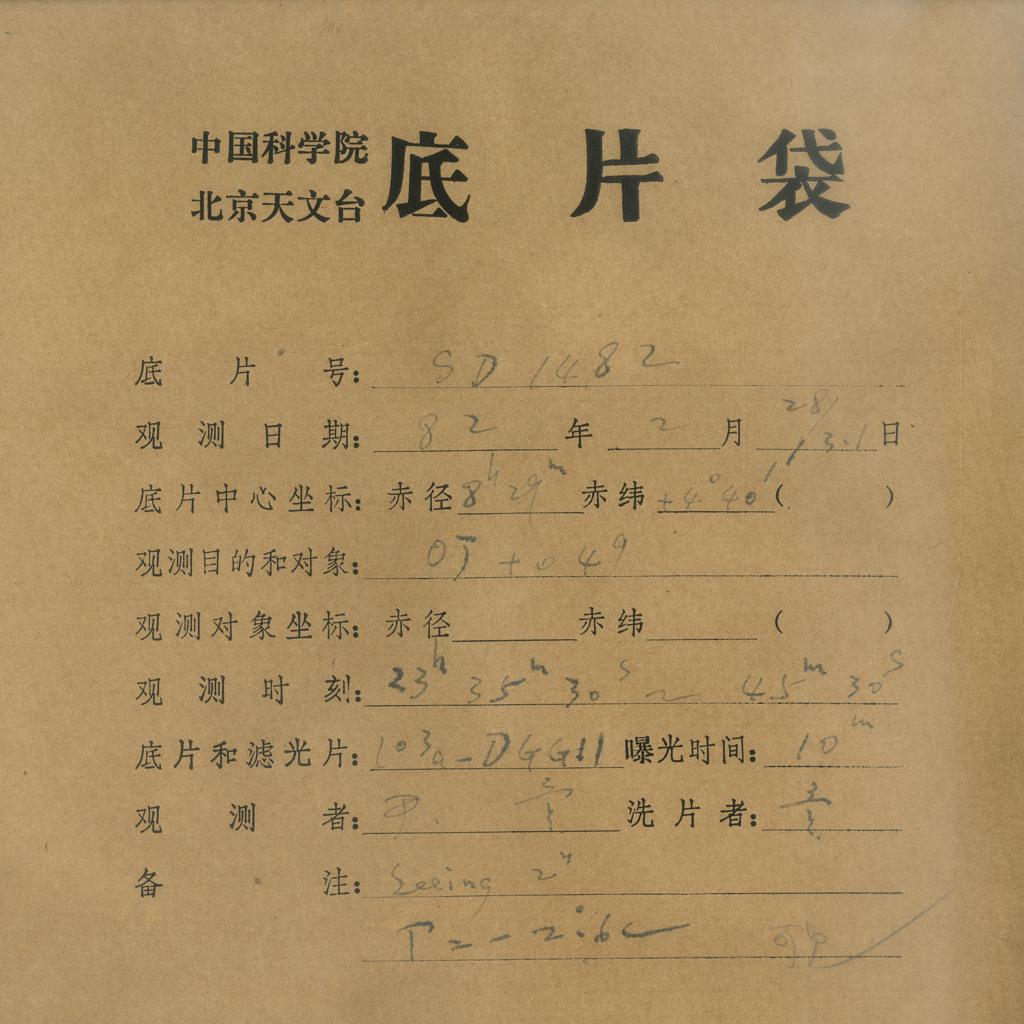 中国科学院
北京天文台
底片袋
底片号: SD 1482
观测日期: 82 年 2 月 28/13.1 日
底片中心坐标: 赤径 8h 29m 赤纬 +4° 40′ ( )
观测目的和对象: OJ + 049
观测对象坐标: 赤径 赤纬 ( )
观测时刻: 23h 35m 30s ~ 45m 30s
底片和滤光片: 103a-D GG11 曝光时间: 10m
观测者: 洗片者:
备注: Seeing 2"
T = -2.°6C